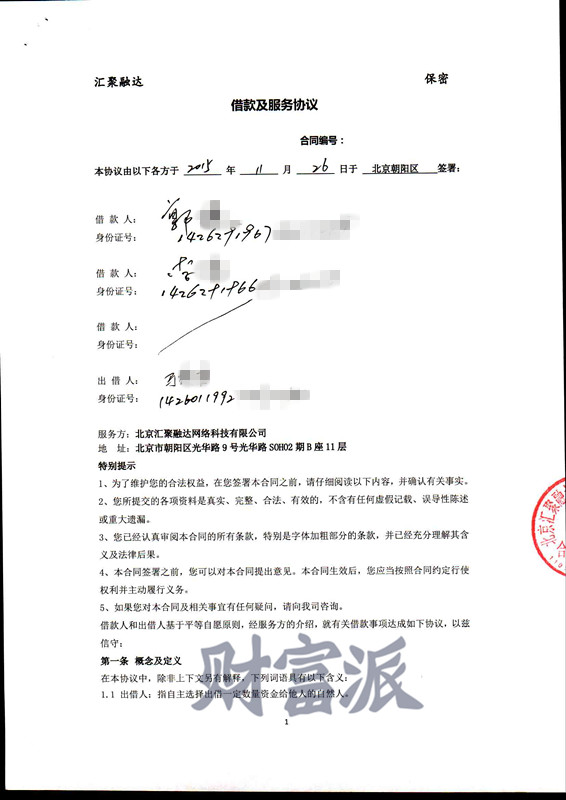 汇聚融达
保密
借款及服务协议
合同编号：
本协议由以下各方于 2015 年 11 月 26 日于 北京朝阳区 签署：
借 款 人： 郭
身份证号： 1426291967
借 款 人： 李
身份证号： 1426291966
借 款 人：
身份证号：
出 借 人：
身份证号： 1426011992
服务方：北京汇聚融达网络科技有限公司
地 址：北京市朝阳区光华路9号光华路SOHO2期B座11层
特别提示
1、为了维护您的合法权益，在您签署本合同之前，请仔细阅读以下内容，并确认有关事实。
2、您所提交的各项资料是真实、完整、合法、有效的，不含有任何虚假记载、误导性陈述
或重大遗漏。
3、您已经认真审阅本合同的所有条款，特别是字体加粗部分的条款，并已经充分理解其含
义及法律后果。
4、本合同签署之前，您可以对本合同提出意见。本合同生效后，您应当按照合同约定行使
权利并主动履行义务。
5、如果您对本合同及相关事宜有任何疑问，请向我司咨询。
借款人和出借人基于平等自愿原则，经服务方的介绍，就有关借款事项达成如下协议，以兹
信守：
第一条 概念及定义
在本协议中，除非上下文另有解释，下列词语具有以下含义：
1.1 出借人：指自主选择出借一定数量资金给他人的自然人。
财富派
1
北京汇聚融